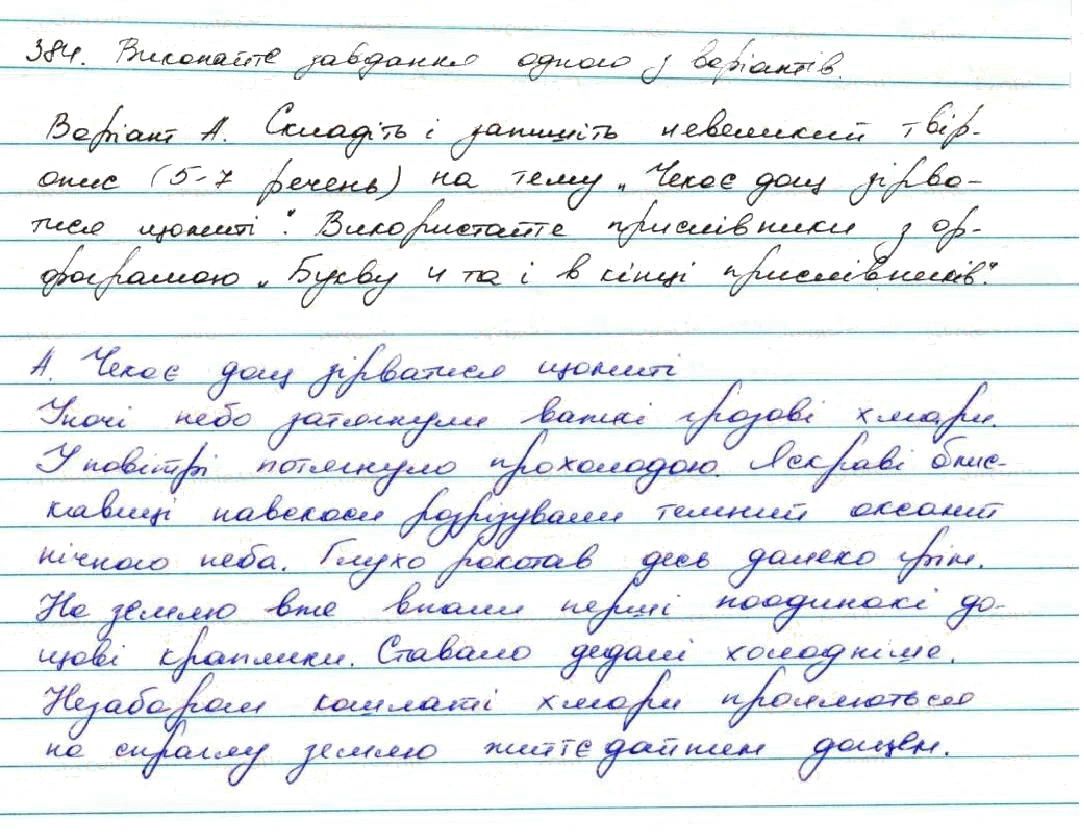 384. Виконайте завдання одного з варіантів.
Варіант А. Складіть і запишіть невеликий твір-
опис (5-7 речень) на тему „Чекає дощ зірва-
тися щомиті". Використайте прислівники з ор-
фограмою „Букви и та і в кінці прислівників".
А. Чекає дощ зірватися щомиті
Уночі небо затягнули важкі грозові хмари.
У повітрі потягнуло прохолодою. Яскраві блис-
кавиці навскоси розрізували темний оксамит
нічного неба. Глухо рокотав десь далеко грім.
На землю вже впали перші поодинокі до-
щові краплинки. Ставало дедалі холодніше.
Незабаром кошлаті хмари проллються
на спраглу землю життєдайним дощем.